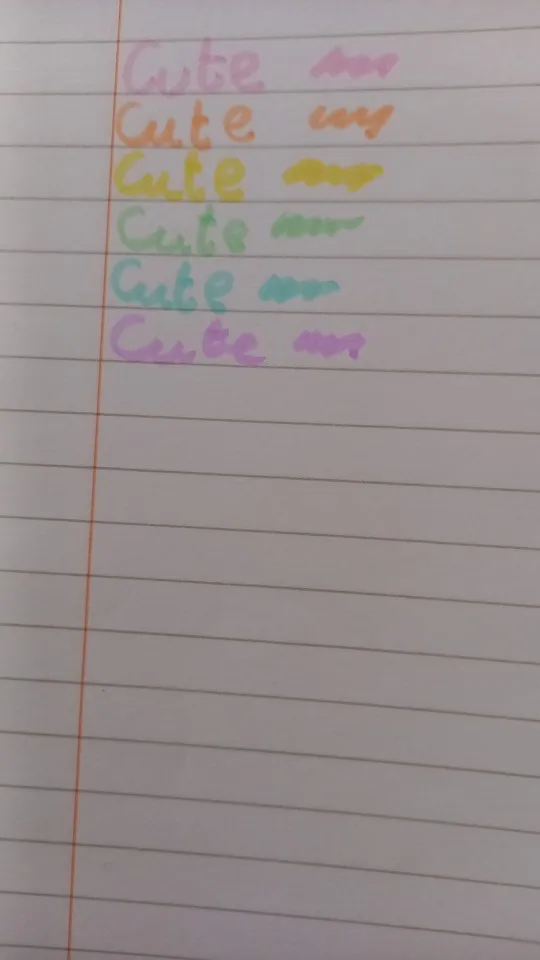 Cute
Cute
Cute
Cute
Cute
Cute